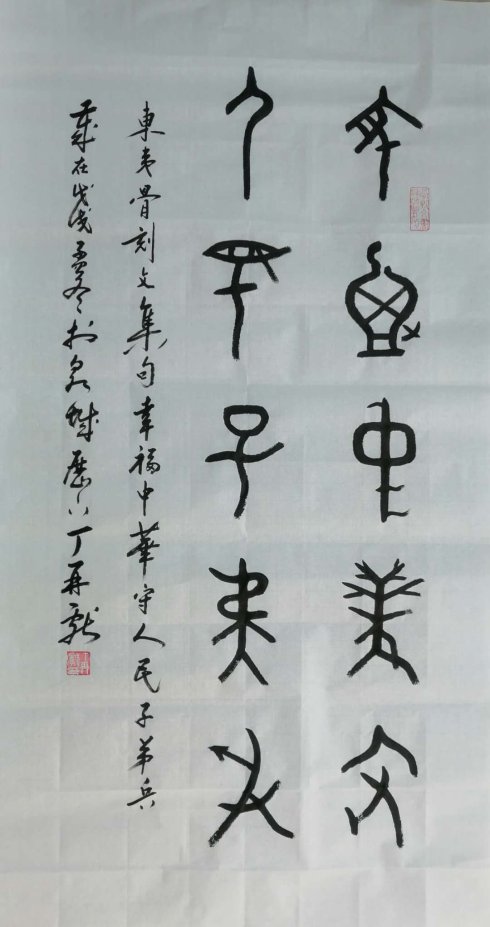 幸福中華守
人民子弟兵
東夷骨刻文集句幸福中華守人民子弟兵
歲在戊戌孟冬於泉城歷下丁再献